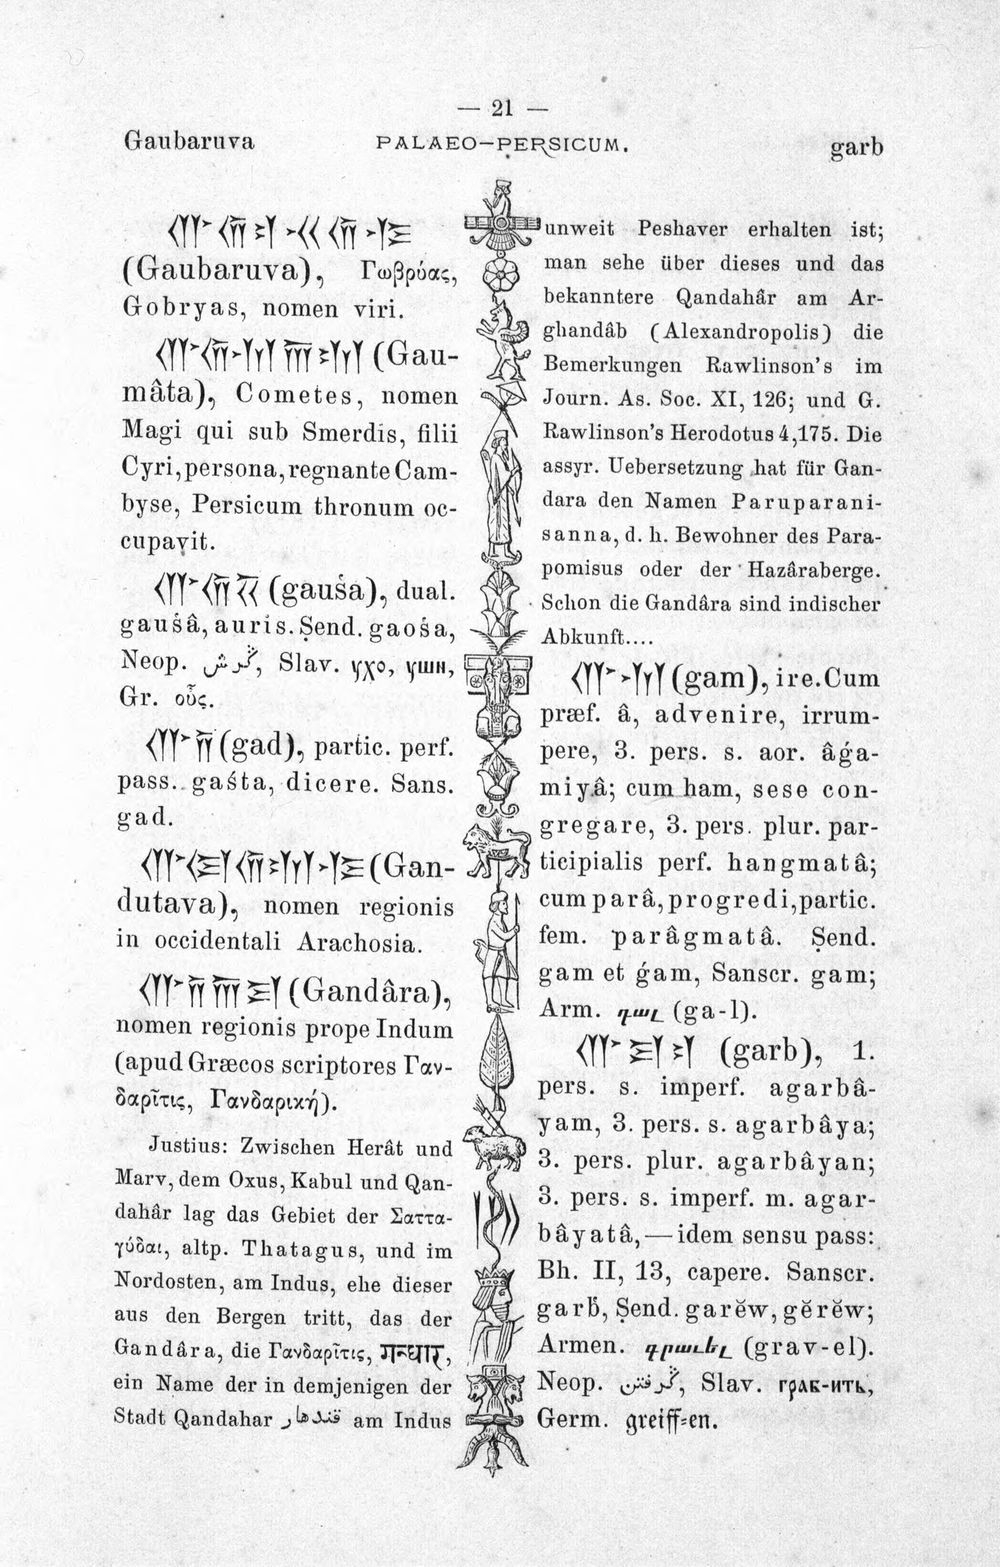 — 21 —
Gaubaruva PALAEO—PERSICUM. garb
𐎥𐎢𐎲𐎽𐎢𐎺
(Gaubaruva), Γωβρύας,
Gobryas, nomen viri.
𐎥𐎢𐎶𐎠𐎫 (Gau-
mâta), Cometes, nomen
Magi qui sub Smerdis, filii
Cyri, persona, regnante Cam-
byse, Persicum thronum oc-
cupavit.
𐎥𐎢𐏁 (gauśa), dual.
gauśâ, auris. Ṣend. gaośa,
Neop. گوش, Slav. ухо, уши,
Gr. οὖς.
𐎥𐎭 (gad), partic. perf.
pass. gaśta, dicere. Sans.
gad.
𐎥𐎭𐎢𐎫𐎺 (Gan-
dutava), nomen regionis
in occidentali Arachosia.
𐎥𐎭𐎠𐎼 (Gandâra),
nomen regionis prope Indum
(apud Græcos scriptores Γαν-
δαρῖτις, Γανδαρική).
Justius: Zwischen Herât und
Marv, dem Oxus, Kabul und Qan-
dahâr lag das Gebiet der Σαττα-
γύδαι, altp. Thatagus, und im
Nordosten, am Indus, ehe dieser
aus den Bergen tritt, das der
Gandâra, die Γανδαρῖτις, गन्धार,
ein Name der in demjenigen der
Stadt Qandahar قندهار am Indus
unweit Peshaver erhalten ist;
man sehe über dieses und das
bekanntere Qandahâr am Ar-
ghandâb (Alexandropolis) die
Bemerkungen Rawlinson's im
Journ. As. Soc. XI, 126; und G.
Rawlinson's Herodotus 4,175. Die
assyr. Uebersetzung hat für Gan-
dara den Namen Paruparani-
sanna, d. h. Bewohner des Para-
pomisus oder der Hazâraberge.
Schon die Gandâra sind indischer
Abkunft....
𐎥𐎶 (gam), ire. Cum
præf. â, advenire, irrum-
pere, 3. pers. s. aor. âǵa-
miyâ; cum ham, sese con-
gregare, 3. pers. plur. par-
ticipialis perf. hangmatâ;
cum parâ, progredi, partic.
fem. parâgmatâ. Ṣend.
gam et ǵam, Sanscr. gam;
Arm. գալ (ga-l).
𐎥𐎼𐎲 (garb), 1.
pers. s. imperf. agarbâ-
yam, 3. pers. s. agarbâya;
3. pers. plur. agarbâyan;
3. pers. s. imperf. m. agar-
bâyatâ,—idem sensu pass:
Bh. II, 13, capere. Sanscr.
garb, Ṣend. garĕw, gĕrĕw;
Armen. գրաւել (grav-el).
Neop. گرفتن, Slav. граб-ить,
Germ. greiff=en.